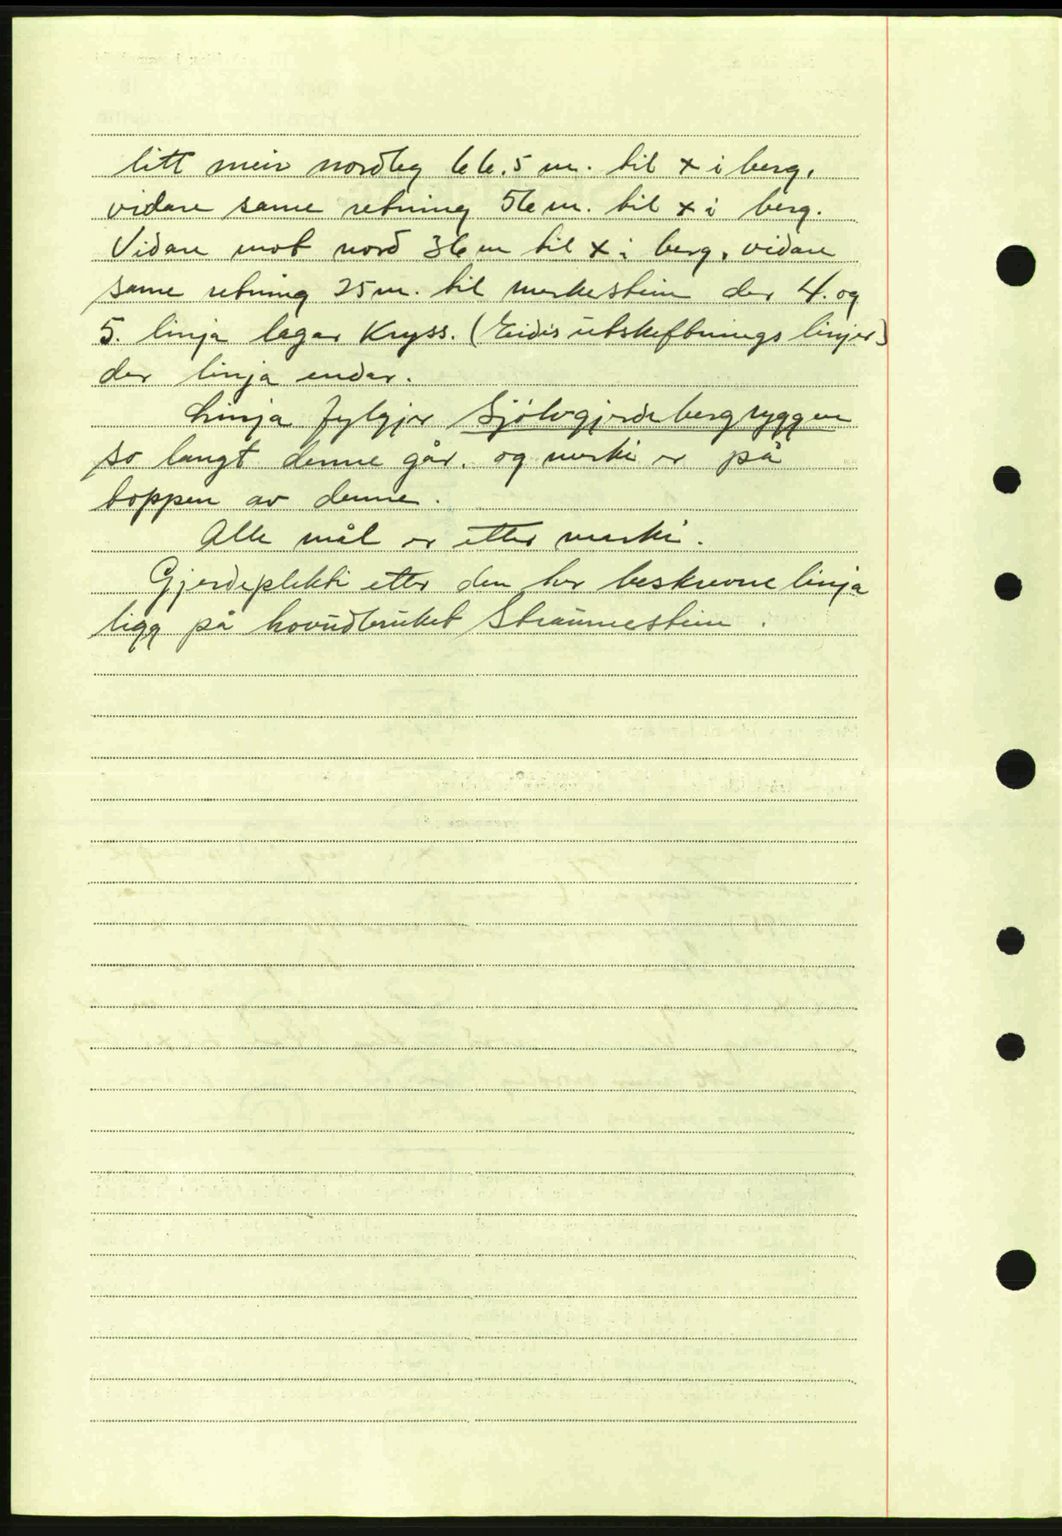 litt meir nordleg 66.5 m. til x i berg,
vidare same retning 56 m. til x i berg.
Vidare mot nord 36 m til x i berg, vidare
same retning 25 m. til merkestein der 4. og
5. linja lagar kryss. (Eidis utskiftnings linjer)
der linja endar.
Linja fylgjer Sjølvgjerdebergryggen
so langt denne går. og merki er på
toppen av denne.
Alle mål er etter merki.
Gjerdeplikti etter den her beskrevne linja
ligg på hovudbruket Straumestein.